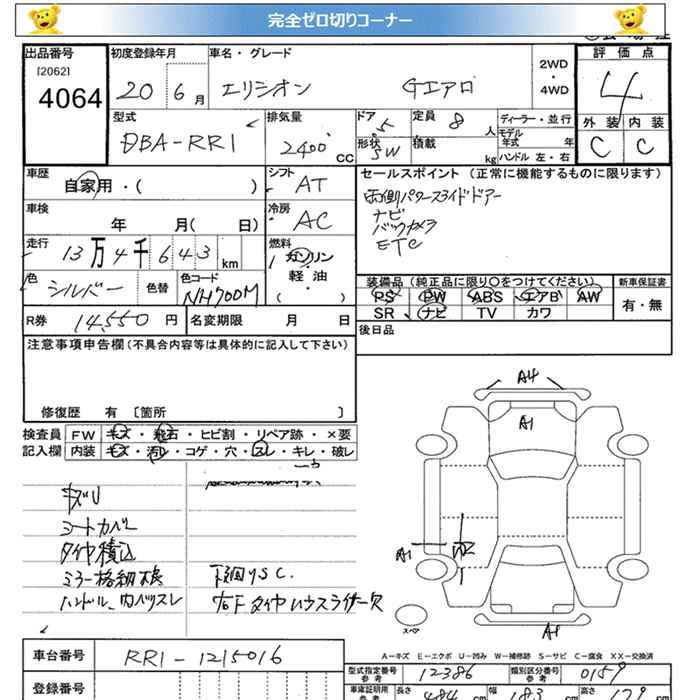 完全ゼロ切りコーナー
出品番号 初度登録年月 車名・グレード 2WD・4WD 評価点
[2062]
4064 20 6月 エリシオン Gエアロ 4
型式 排気量 ドア 5 定員 8人 ディーラー・並行 外装 内装
DBA-RR1 2400cc 形状 SW 積載 kg モデル年式 年 ハンドル 左・右 C C
車歴 シフト セールスポイント(正常に機能するものに限ります)
自家用・( ) AT 両側パワースライドドアー
車検 冷房 ナビ
年 月( 日) AC バックカメラ
走行 燃料 ETC
13万4千643km ガソリン
色 色替 色コード 軽・油 装備品(純正品に限り○をつけてください) 新車保証書
シルバー NH700M ( ・ ) PS PW ABS エアB AW 有・無
SR ナビ TV カワ
R券 14,550円 名変期限 月 日 後日品
注意事項申告欄(不具合内容等は具体的に記入して下さい)
修復歴 有 [箇所 ]
検査員 FW キズ・飛石・ヒビ割・リペア跡・×要
記入欄 内装 キズ・汚レ・コゲ・穴・スレ・キレ・破レ
キズU
シートカバー
タイヤ積込
ミラー格納不良 下回りSC.
ハンドル、内ハリスレ 右Fタイヤハウスライナー欠
A4
A1
A1
A1
スペア
A-キズ E-エクボ U-凹み W-補修跡 S-サビ C-腐食 XX-交換済
車台番号 RR1-1215016
型式指定番号 参考 12386 類別区分番号 参考 0159
登録番号
車庫証明用 長さ 484cm 幅 183cm 高さ 179cm